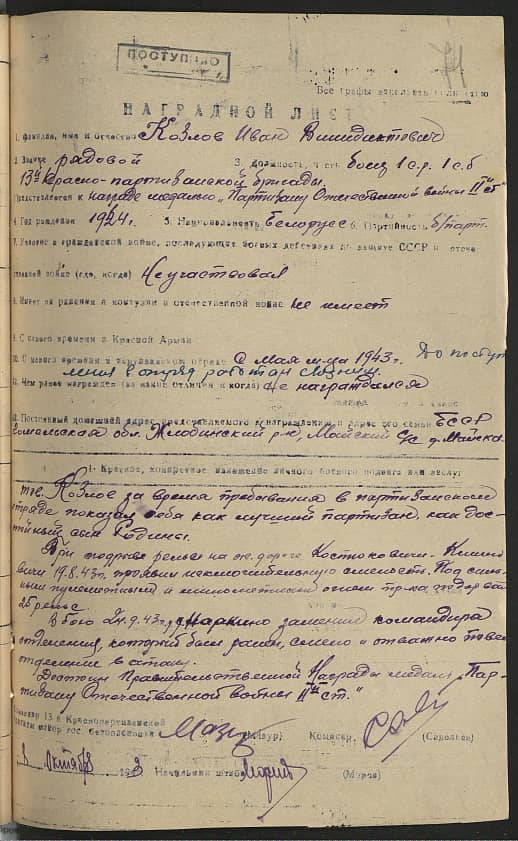 ПОСТУПИЛО
Все графы заполнять полностью
НАГРАДНОЙ ЛИСТ
1. Фамилия, имя и отчество Козлов Иван Винидиктович
2. Звание рядовой 3. Должность, часть боец 1 с.р. 1 с.б
13й Красно-партизанской бригады.
Представляется к награде медалью „Партизану Отечественной войны IIй ст"
4. Год рождения 1924 г. 5. Национальность белорус 6. Партийность б/парт.
7. Участие в гражданской войне, последующих боевых действиях по защите СССР и отече-
ственной войне (где, когда) Не участвовал
8. Имеет ли ранения и контузии в отечественной войне не имеет
9. С какого времени в Красной Армии
10. С какого времени в партизанском отряде С мая м-ца 1943 г. До поступ
ления в отряд работал связным
11. Чем ранее награжден (за какие отличия и когда) не награждался
12. Постоянный домашний адрес представляемого к награждению и адрес его семьи БССР
Гомельская обл. Жлобинский р-н, Майский с/с д. Майское
1. Краткое, конкретное изложение личного боевого подвига или заслуг
тов. Козлов за время пребывания в партизанском
отряде показал себя как лучший партизан, как дос-
тойный сын Родины.
При подрыве рельс на жел. дороге Костюковичи-Климо
вичи 19.8.43 г. проявил исключительную смелость. Под силь-
ным пулеметным и минометным огнем пр-ка подорвал
25 рельс.
В бою 24.9.43 г. д. Маркино заменил командира
отделения, который был ранен, смело и отважно повел
отделение в атаку.
Достоин Правительственной Награды медали „Пар-
тизану Отечественной войны IIй ст."
Командир 13 й Краснопартизанской
бригады майор гос. безопасности (Мазур) Комисар,
8 октября 1943 Начальник штаба